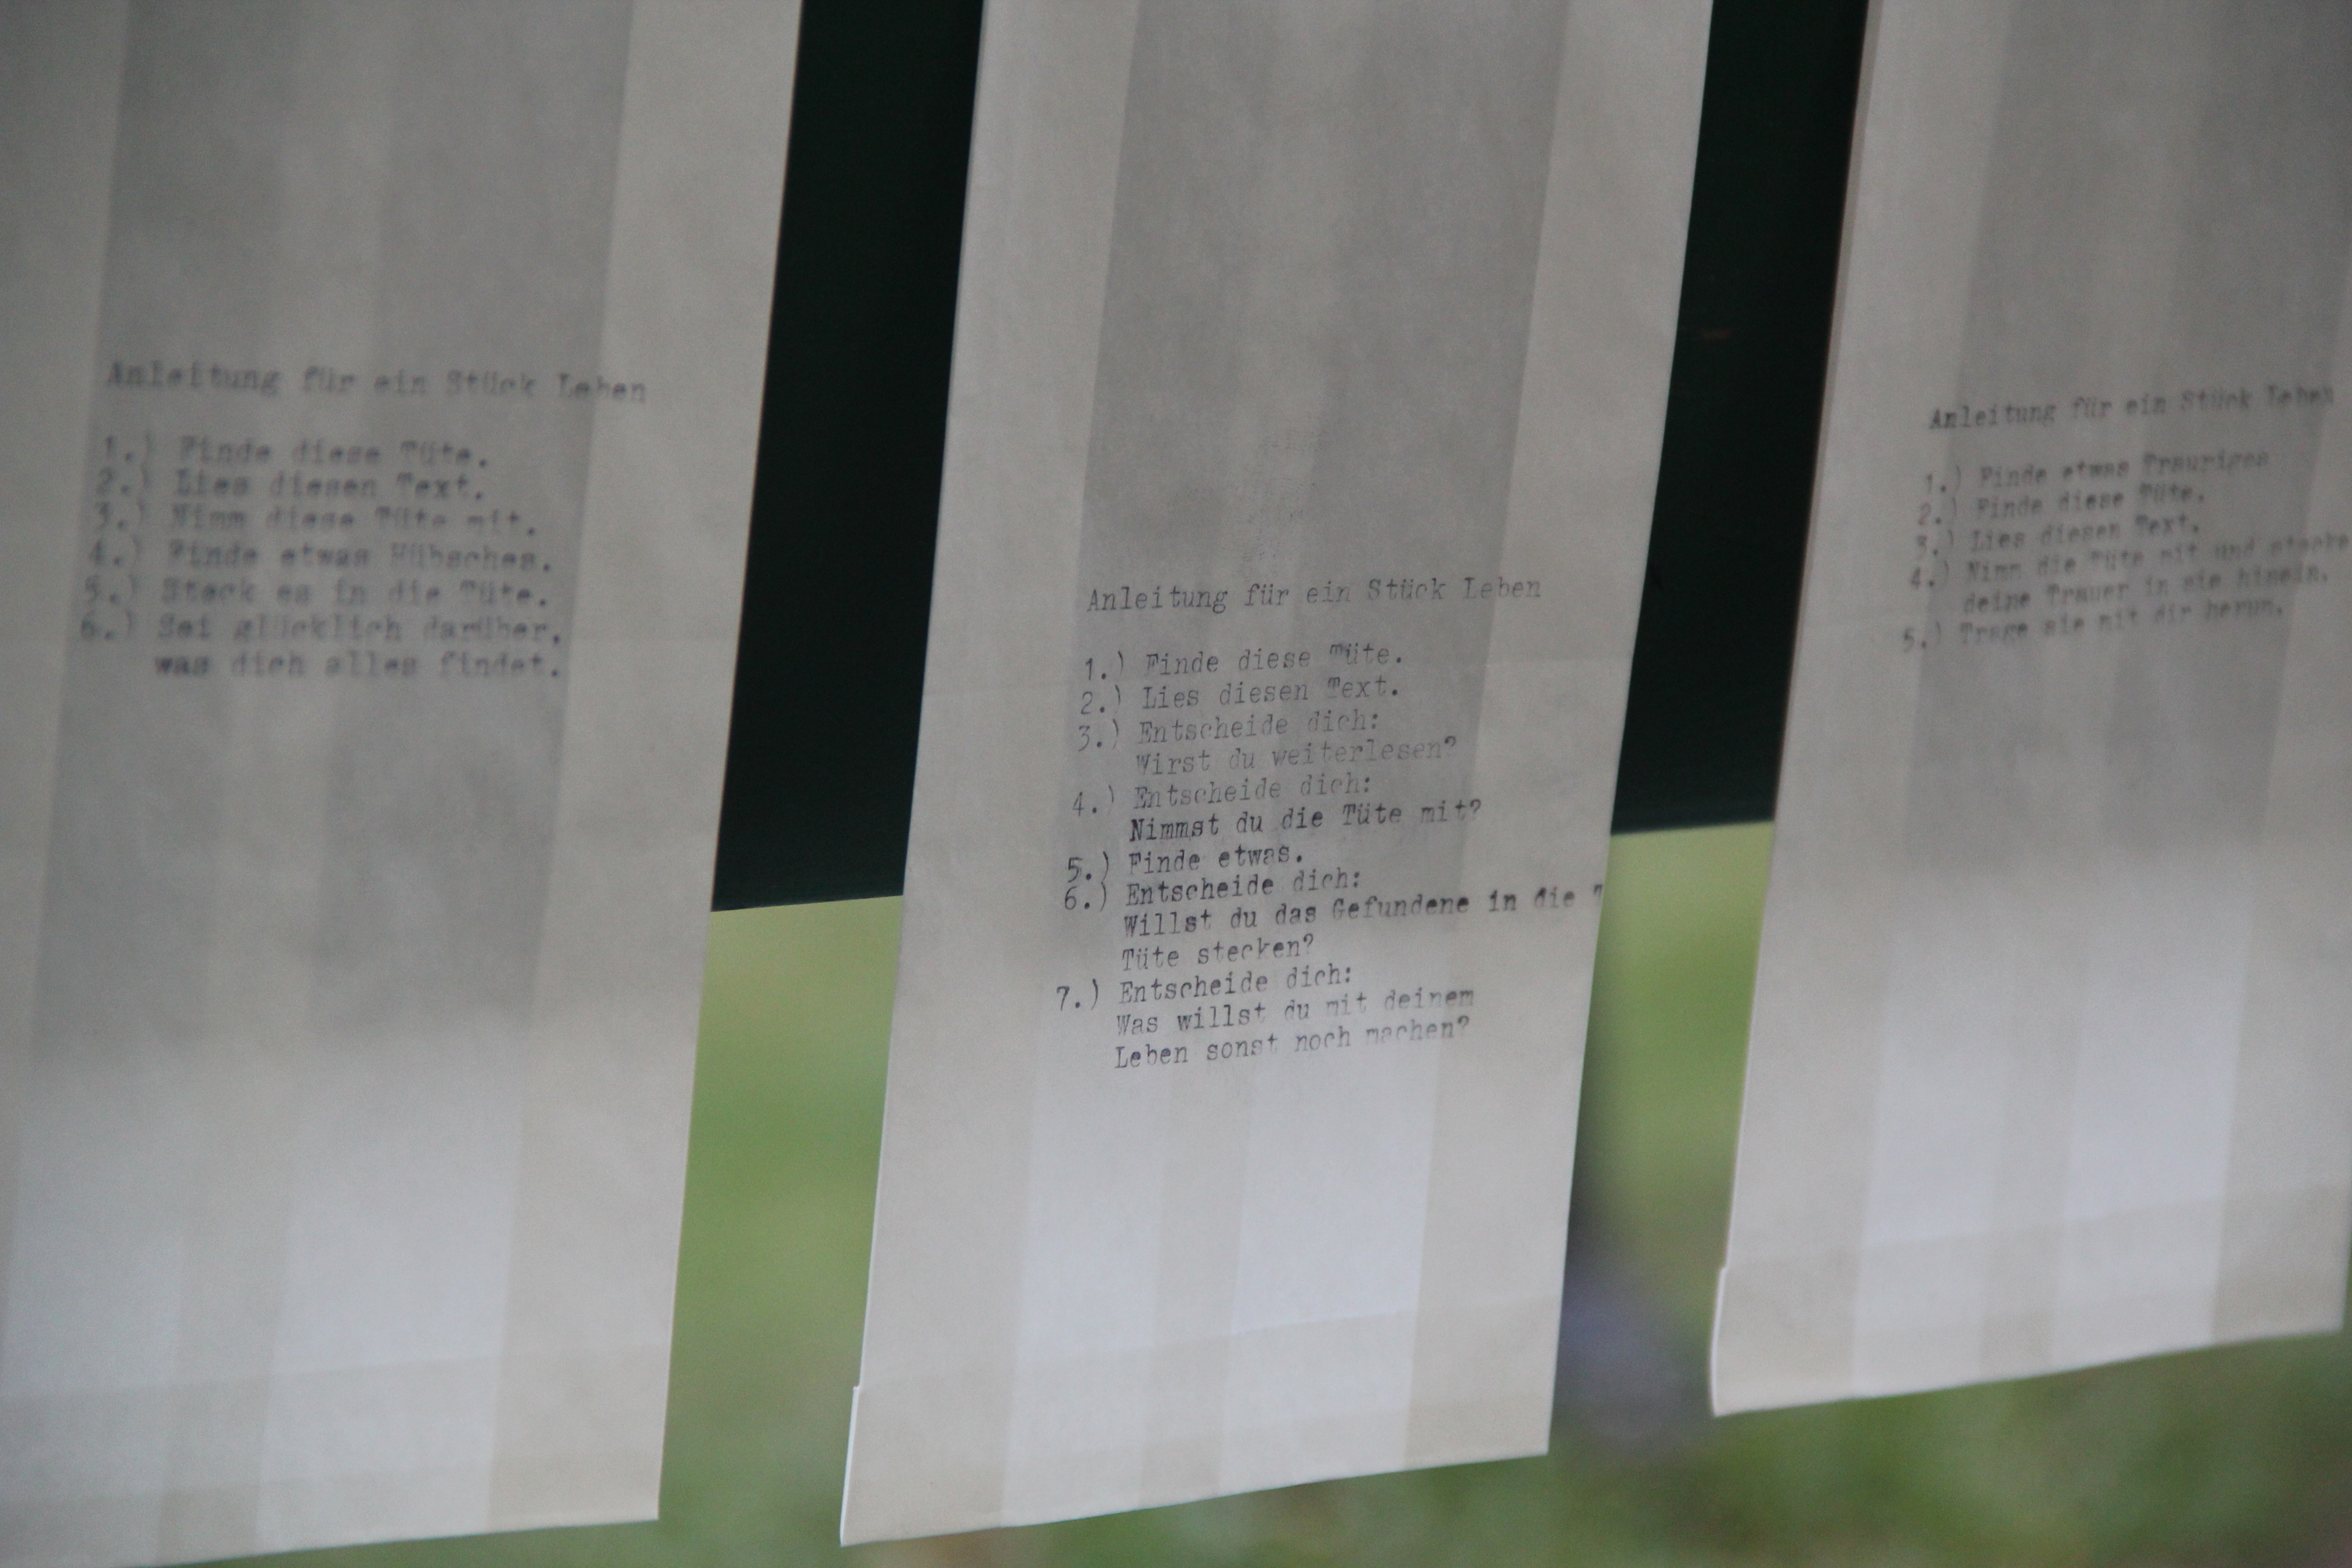 Anleitung für ein Stück Leben
1.) Finde diese Tüte.
2.) Lies diesen Text.
3.) Nimm diese Tüte mit.
4.) Finde etwas Hübsches.
5.) Steck es in die Tüte.
6.) Sei glücklich darüber,
was dich alles findet.
Anleitung für ein Stück Leben
1.) Finde diese Tüte.
2.) Lies diesen Text.
3.) Entscheide dich:
Wirst du weiterlesen?
4.) Entscheide dich:
Nimmst du die Tüte mit?
5.) Finde etwas.
6.) Entscheide dich:
Willst du das Gefundene in die
Tüte stecken?
7.) Entscheide dich:
Was willst du mit deinem
Leben sonst noch machen?
Anleitung für ein Stück Leben
1.) Finde etwas Trauriges
2.) Finde diese Tüte.
3.) Lies diesen Text.
4.) Nimm die Tüte mit und stecke
deine Trauer in sie hinein.
5.) Trage sie mit dir herum.